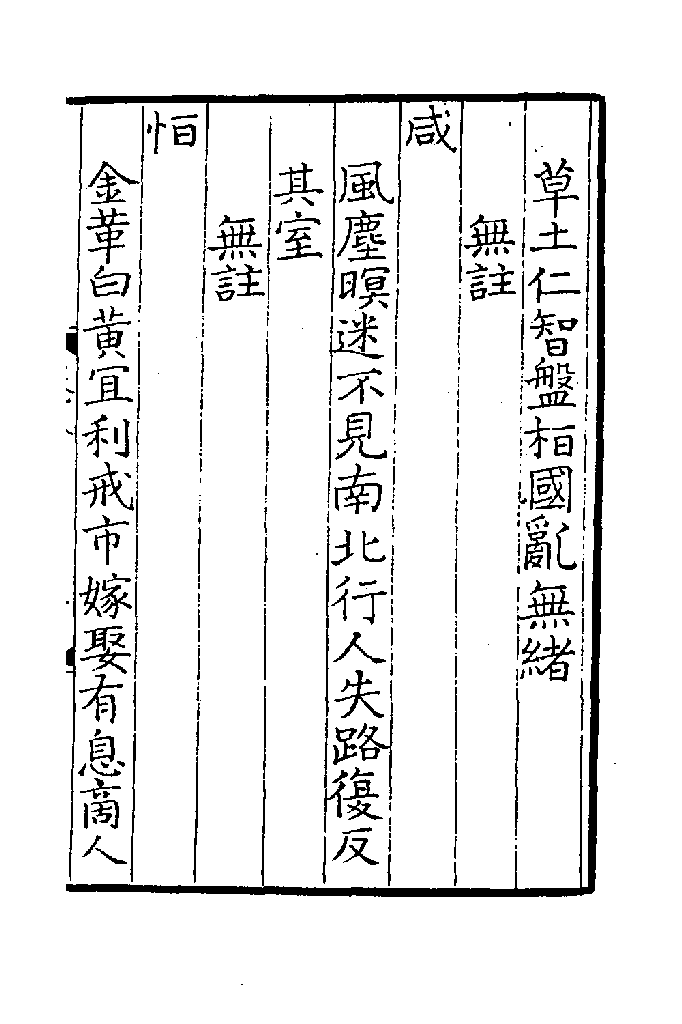 草土仁智盤栢國亂無緒
無註
咸
風塵暝迷不見南北行人失路復反
其室
無註
恒
金革白黃宜利戎市嫁娶有息商人